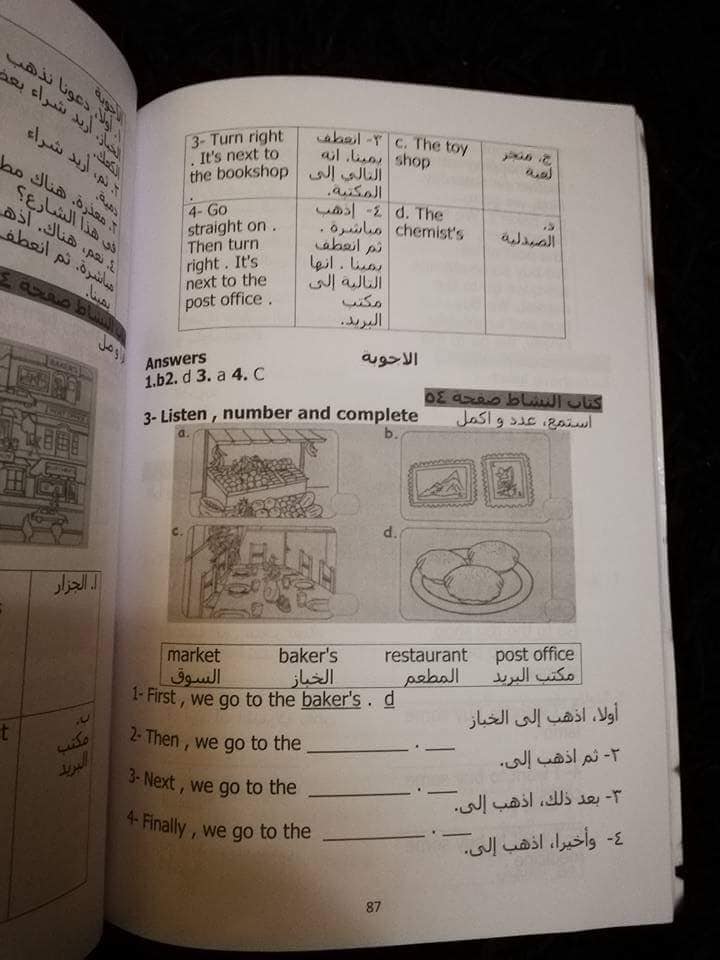 3- Turn right
. It's next to
the bookshop
.
٣- انعطف
يمينا. انه
التالي إلى
المكتبة.
c. The toy
shop
ج. متجر
لعبة
4- Go
straight on .
Then turn
right . It's
next to the
post office .
٤- إذهب
مباشرة .
ثم انعطف
يمينا . انها
التالية إلى
مكتب
البريد.
d. The
chemist's
د.
الصيدلية
Answers الاجوبة
1.b2. d 3. a 4. C
كتاب النشاط صفحة ٥٤
3- Listen , number and complete استمع، عدد و اكمل
a. b.
c. d.
market baker's restaurant post office
السوق الخباز المطعم مكتب البريد
1- First , we go to the baker's . d
أولا، اذهب إلى الخباز
2- Then , we go to the __________ . ___
٢- ثم اذهب إلى.
3- Next , we go to the __________ . ___
٣- بعد ذلك، اذهب إلى.
4- Finally , we go to the __________ . ___
٤- وأخيرا، اذهب إلى.
87
الاجوبة
١. أولا، دعونا نذهب
الخباز. أريد شراء بعض
الكعك.
٢. ثم، أريد شراء
دمية.
٣. معذرة. هناك
في هذا الشارع؟
٤. نعم، هناك.
مباشرة. ثم انعطف
يمينا.
كتاب النشاط صفحة
ا. الجزار
ب.
مكتب
البريد